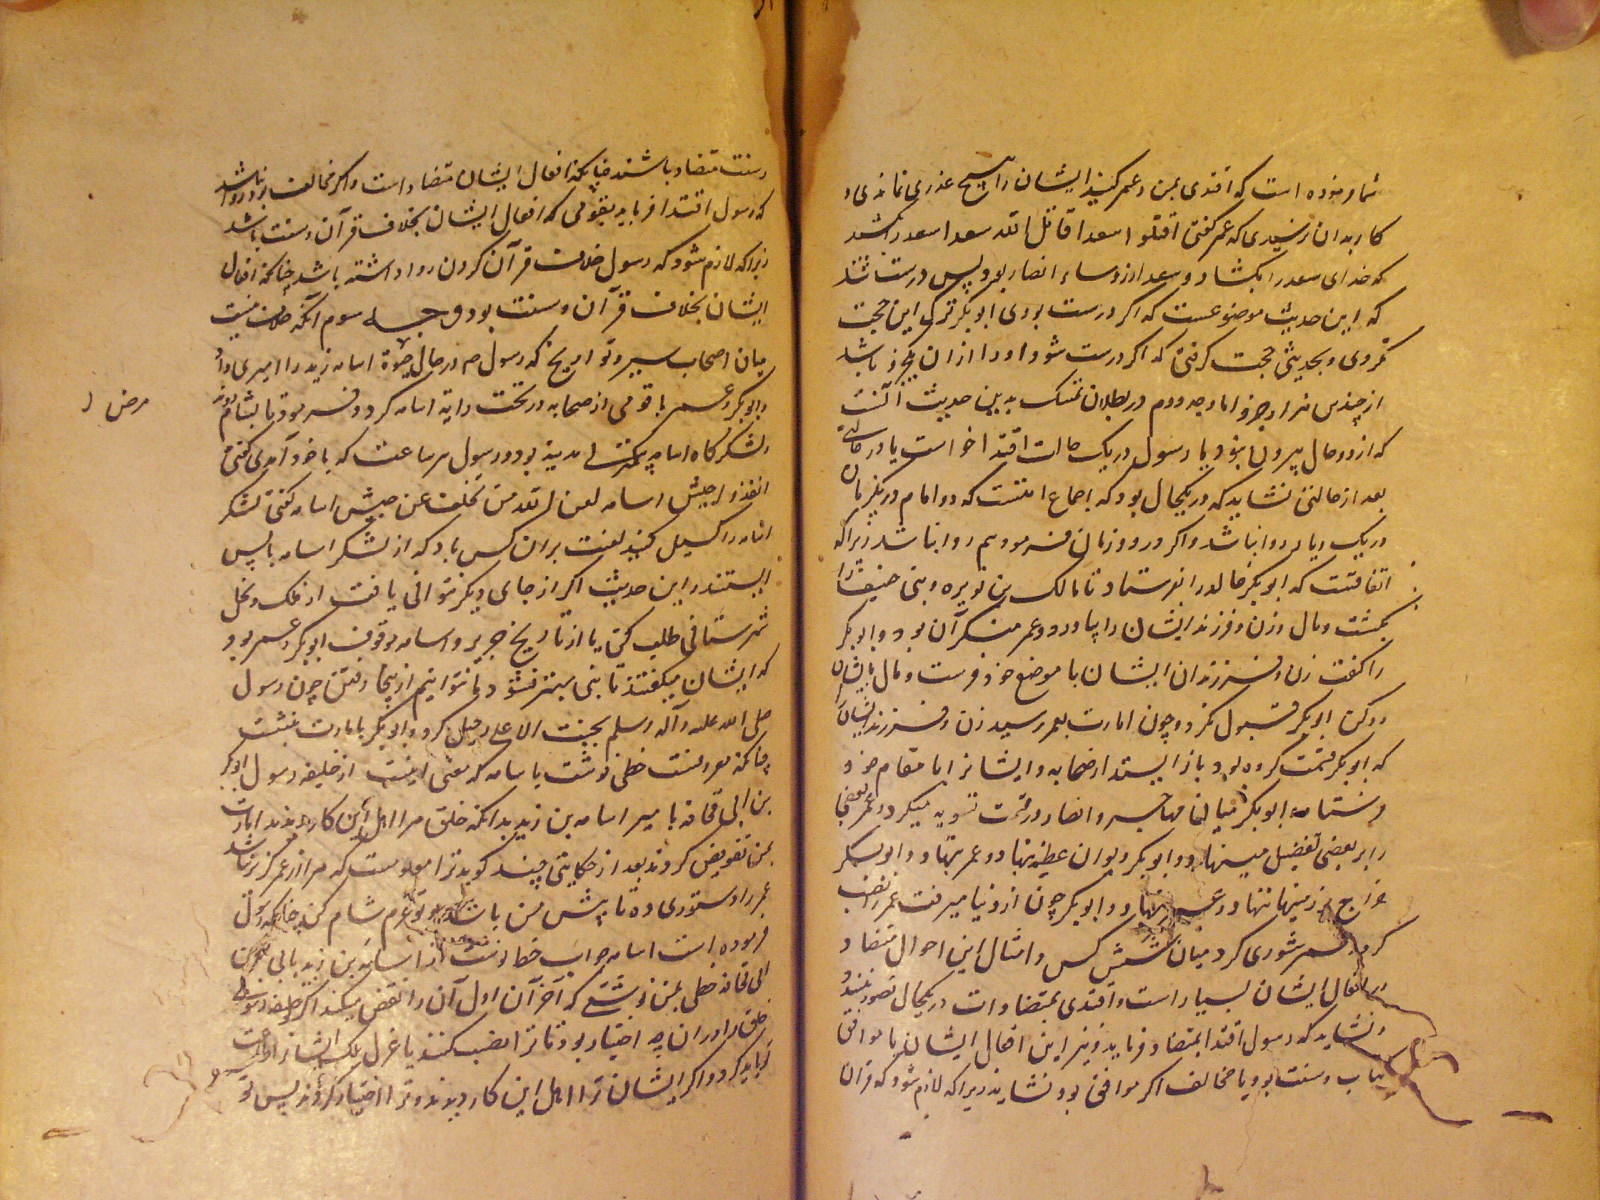 شما فرموده است که اقتدی بمن و عمر کنید ایشان را هیچ عذری نماندی و
کار بدان نرسیدی که عمر گفتی اقتلوا سعدا قاتل الله سعدا سعد را بکشید
که خدای سعد را بکشاد و سعد از روساء انصار بود پس درست شد
که این حدیث موضوعست که اگر درست بودی ابوبکر ترک این حجت
نکردی و بحدیثی حجت گرفتی که اگر درست شود او را از ان
از چندین هزار جزو اما وجه دوم در بطلان تمسک بدین حدیث آنست
که از دو حال بیرون نبود یا رسول در یک حالت اقتدا خواست یا در حالتی
بعد از حالتی نشاید که در یکحال بود که اجماع امتست که دو امام در یکزمان
در یک دیار روا نباشد و اگر در دو زمان فرمود هم روا نباشد زیرا که
اتفاقست که ابوبکر خالد را بفرستاد تا مالک بن نویره و بنی حنیفه را
بکشت و مال و زن و فرزند ایشان را بیاورد و عمر منکر آن بود و ابوبکر
را گفت زن و فرزندان ایشان با موضع خود فرست و مال بایشان
رد کن ابوبکر قبول نکرد و چون امارت بعمر رسید زن و فرزند ایشان را
که ابوبکر قسمت کرده بود باز استد از صحابه و ایشانرا با مقام خود
فرستاد و ابوبکر میان مهاجر و انصار در قسمت تسویه میکرد و عمر بعضی
را بر بعضی تفضیل مینهاد و ابوبکر دیوان عطیه ننهاد و عمر بنهاد و ابوبکر
خراج بر زمینها ننهاد و عمر بنهاد و ابوبکر چون از دنیا میرفت عمر را نصب
کرد و عمر شوری کرد میان شش کس و امثال این احوال متضاد
در افعال ایشان بسیار است و اقتدی بمتضادات در یکحال تصور نبندد
و نشاید که رسول اقتدا بمتضاد فرماید و نیز این افعال ایشان یا موافق
کتاب و سنت بود یا مخالف اگر موافق بود نشاید زیرا که لازم شود که قرآن
و سنت متضاد باشند چنانکه افعال ایشان متضاد است و اگر مخالف بود روا نباشد
که رسول اقتدا فرماید بقومی که افعال ایشان بخلاف قرآن و سنت باشد
زیرا که لازم شود که رسول خلاف قرآن کردن روا داشته باشد چنانکه افعال
ایشان بخلاف قرآن و سنت بود وجه سوم آنکه خلاف نیست
میان اصحاب سیر و تواریخ که رسول م در حال حیوة اسامه زید را امیری داد
و ابوبکر و عمر با قومی از صحابه در تحت رایة اسامه کرد و فرمود تا بشام روند
و لشکرگاه اسامه بیکمنزلی مدینه بود و رسول هر ساعت که با خود آمدی گفتی
انفذوا جیش اسامه لعن الله من تخلف عن جیش اسامه گفتی لشکر
اسامه را گسیل کنید لعنت بران کس باد که از لشکر اسامه باپس
ایستد و این حدیث اگر از جای دیگر نتوانی یافت از ملل و نحل
شهرستانی طلب کن یا از تاریخ جریر و اسامه موقوف ابوبکر و عمر بود
که ایشان میگفتند تا نبی بهتر نشود ما نتوانیم ازینجا رفتن چون رسول
صلی الله علیه و آله و سلم بجنت الاعلی رحیل کرد و ابوبکر بامارت بنشست
چنانکه معروفست خطی نوشت باسامه که معنی اینست از خلیفه رسول ابوبکر
بن ابی قحافه با میر اسامه بن زید بدانکه خلق مرا اهل این کار دیدند امارت
بمن تفویض کردند بعد از حکایتی چند گوید ترا معلومست که مرا از عمر گزیر نباشد
عمر را دستوری ده تا پیش من باشد و تو عزم شام کن چنانکه رسول
فرموده است اسامه جواب خط او نوشت از اسامة بن زید بابی بکر بن
ابی قحافه خطی بمن نوشتی که آخر آن اول آن را نقض میکند اگر خلیفه رسولی
خلق را دران چه اختیار بود تا ترا نصب کنند یا عزل بلک ایشانرا اطاعت
باید کرد و اگر ایشان ترا اهل این کار دیدند و ترا اختیار کردند پس تو
مرض ر